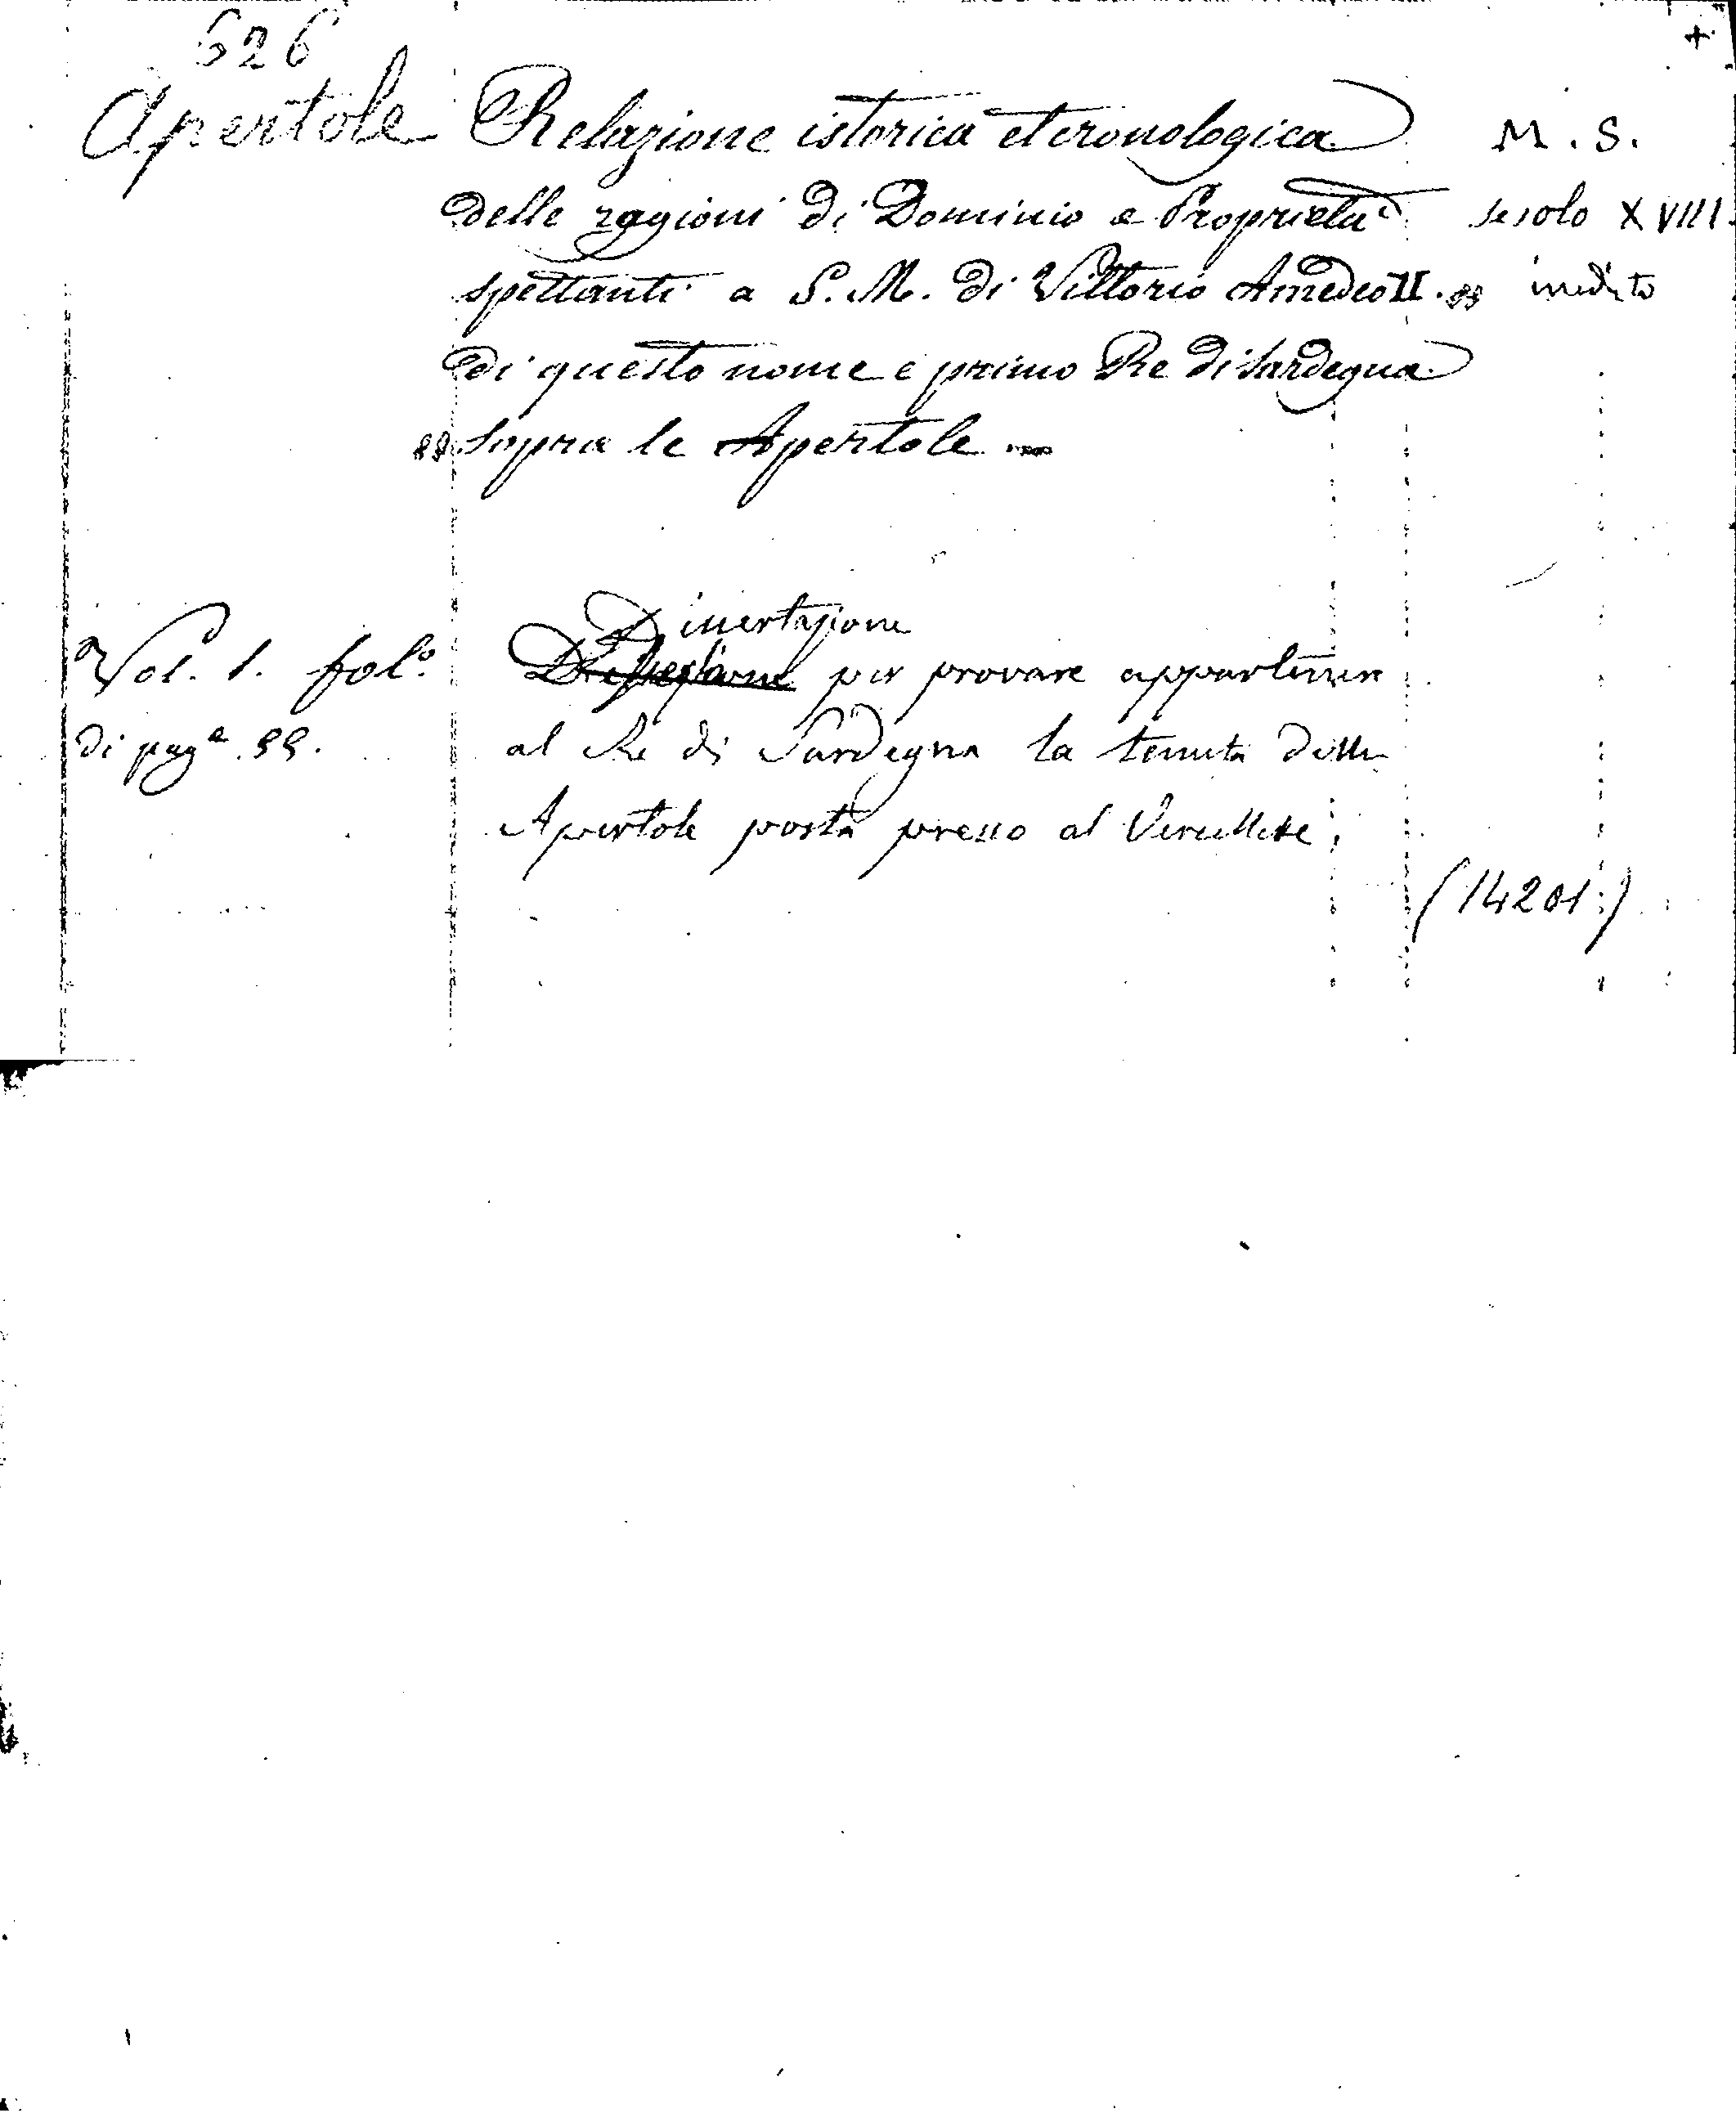 626
Apertole Relazione istorica et cronologica M. S.
delle ragioni di Dominio e Proprietà secolo XVIII
spettanti a S. M. di Vittorio Amedeo II. inedito
di questo nome e primo Re di Sardegna
sopra le Apertole
Dissertazione
Vol. 1. fol.º per provare appartenere
di pag.ª 55. al Re di Sardegna la tenuta delle
Apertole posta presso al Vercellese
(14201)